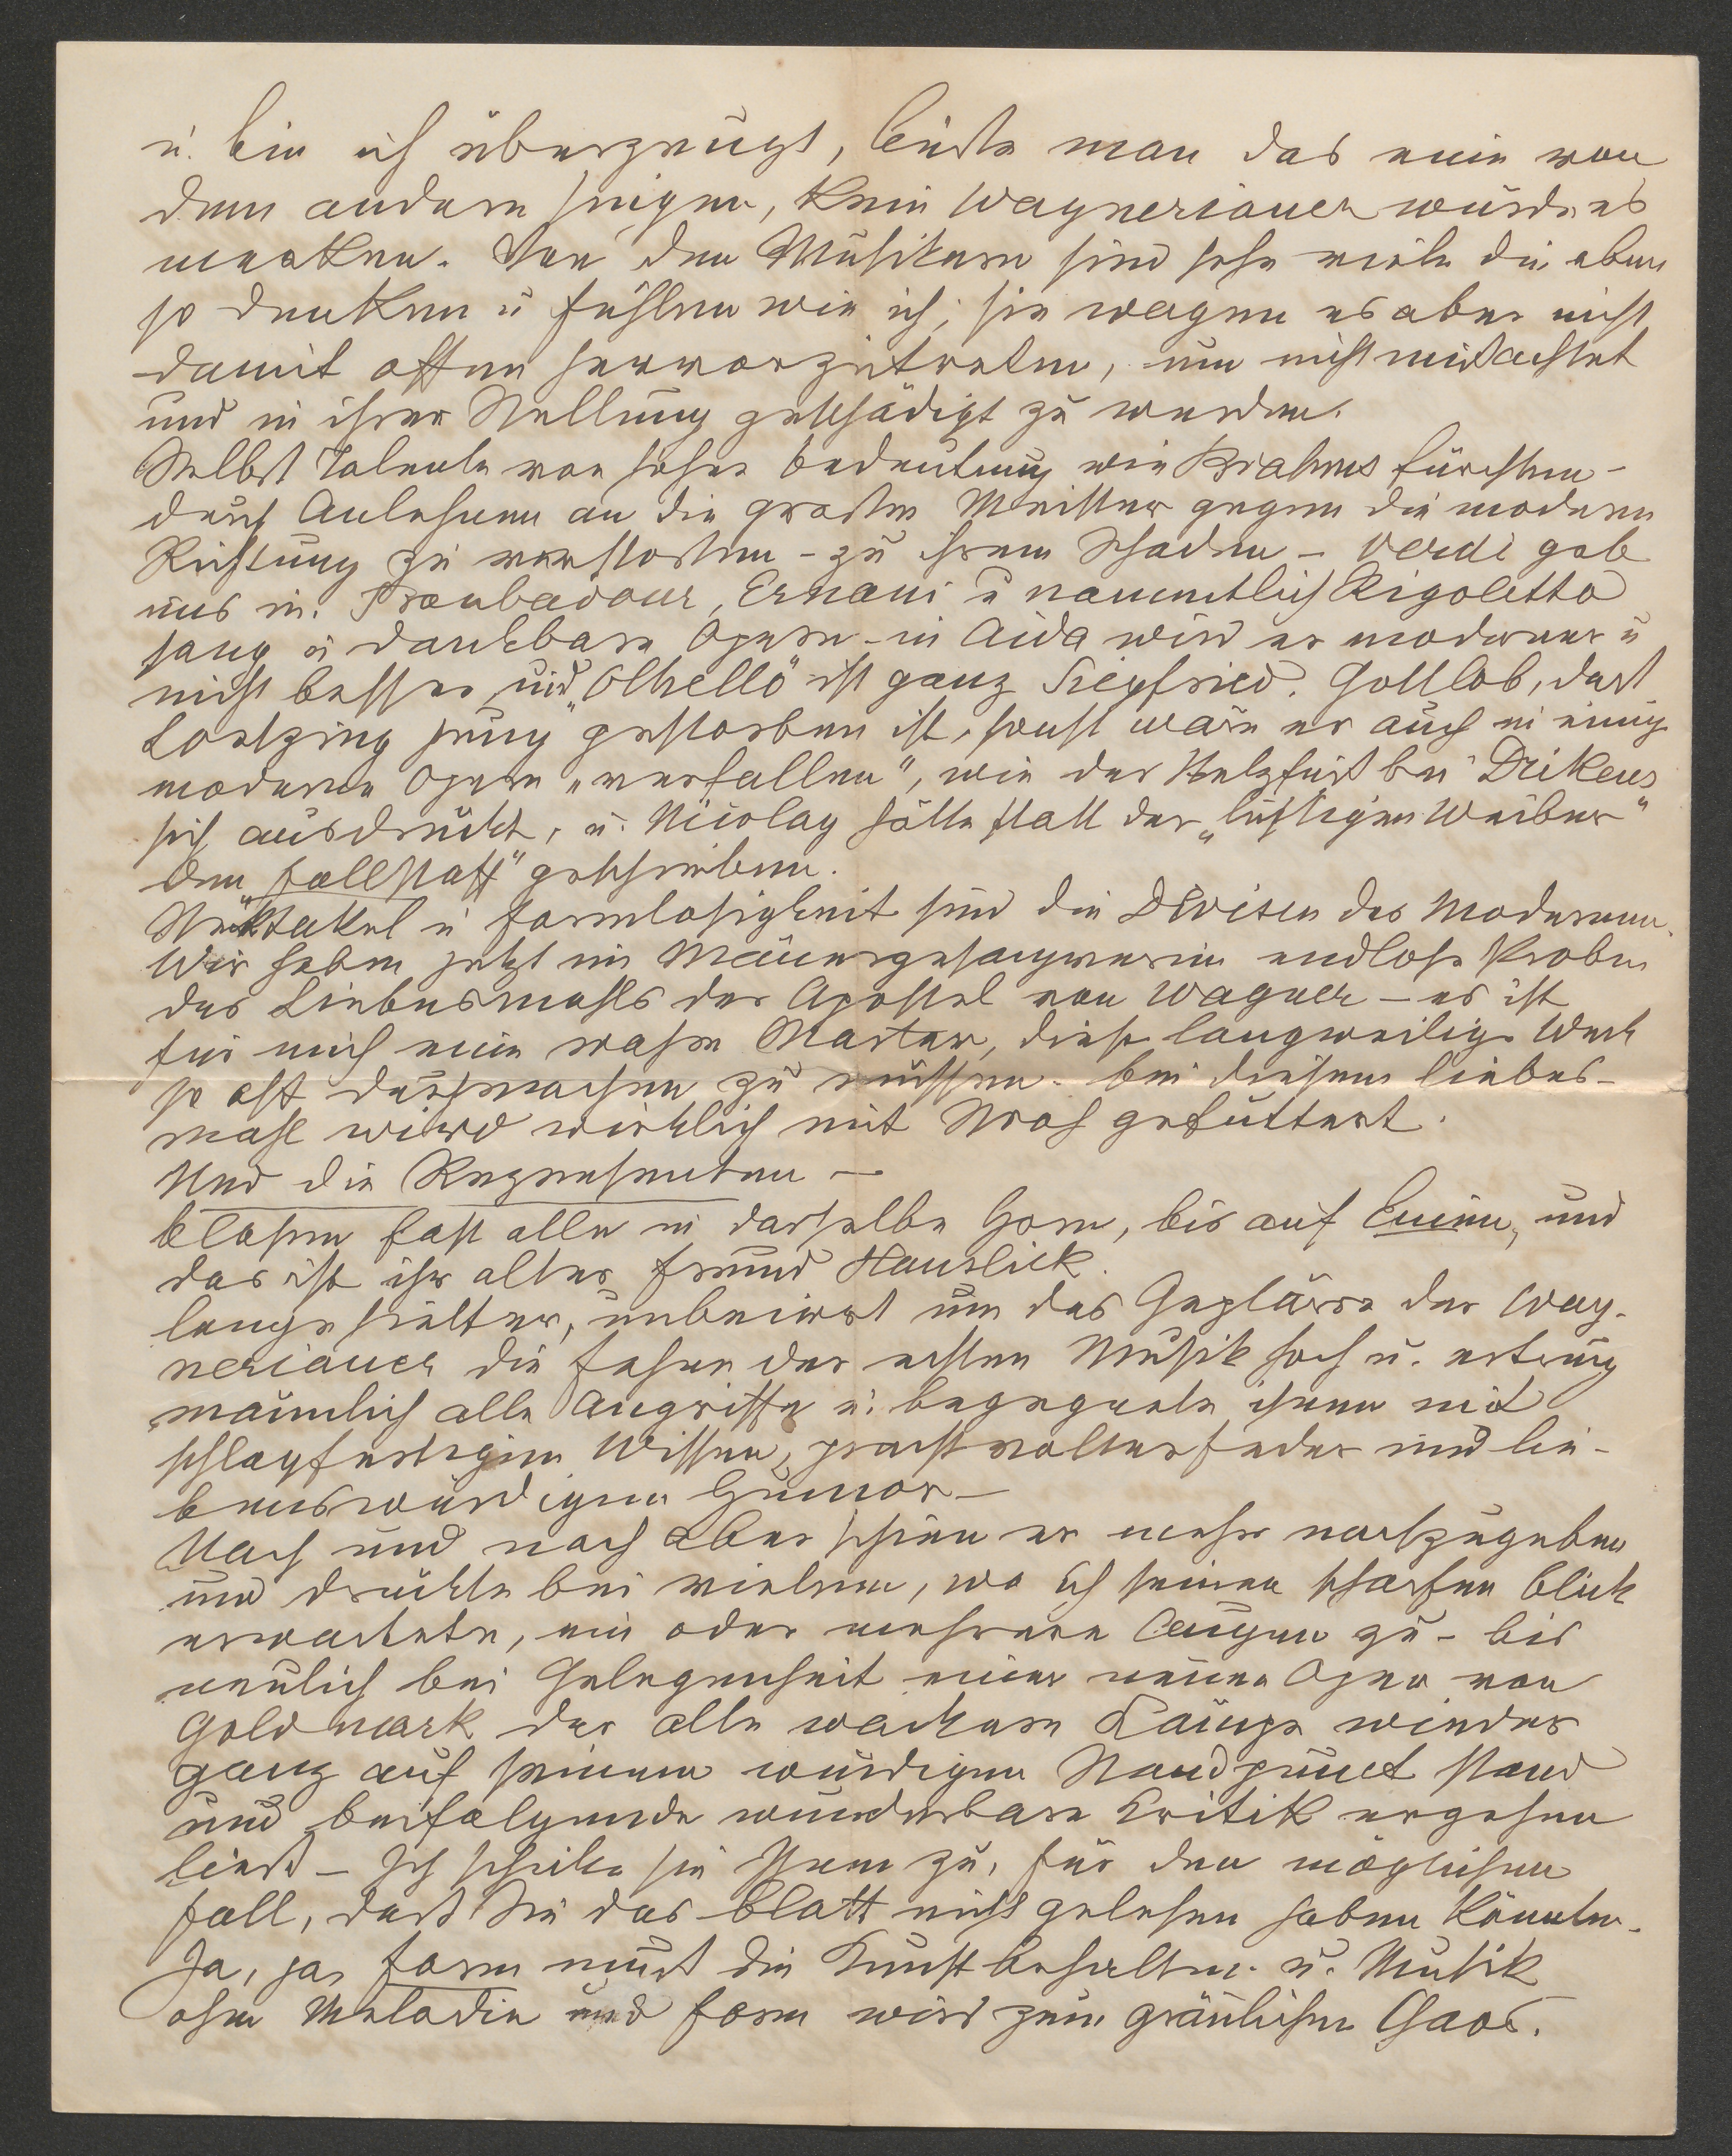 u. bin ich überzeugt, ließe man das eine von
dem andern singen, kein Wagnerianer würde es
merken. Von den Musikern sind sehr viele die eben
so denken u fühlen wie ich; sie wagen es aber nicht
damit offen hervorzutreten, um nicht mißachtet
und in ihrer Stellung geschädigt zu werden.
Selbst Talente von hoher Bedeutung wie Brahms fürchten –
durch Anlehnen an die großen Meister gegen die moderne
Richtung zu verstoßen – zu ihrem Schaden – Verdi gab
uns in Troubadour, Ernani u namentlich Rigoletto
sang u dankbare Opern – in Aida wird er moderner u
nicht besser und „Othello" ist ganz Siegfried. Gottlob, daß
Lortzing jung gestorben ist, sonst wäre er auch in einige
moderne Opern „verfallen", wie der Stelzfuß bei Dikens
sich ausdrückt, u. Nicolay hätte statt der „lustigen Weiber"
den „Fallstaff" geschrieben.
Spektakel u Formlosigkeit sind die Devisen des Modernen.
Wir haben jetzt im Männergesangverein endlose Proben
des Liebesmahls der Apostel von Wagner – es ist
für mich eine wahre Marter, diese langweilige Werk
so oft durchmachen zu müssen. Bei diesem Liebes-
mahl wird wirklich mit Stroh gefüttert.
Und die Rezensenten –
blasen fast alle in dasselbe Horn, bis auf Einen, und
das ist ihr alter Freund Hanslick.
Lange hielt er, unbeirrt um das Geplärre der Wag-
nerianer die Fahne der echten Musik hoch u. ertrug
männlich alle Angriffe u. begegnete ihnen mit
schlagfertigem Wissen, prachtvoller Feder und lie-
benswürdigem Humor –
Nach und nach aber schien er mehr nachzugeben
und drückte bei vielem, wo ich seinen scharfen Blick
erwartete, ein oder mehrere Augen zu – bis
neulich bei Gelegenheit einer neuen Oper von
Goldmark der alte wackere Kämpe wieder
ganz auf seinem würdigen Standpunct stand
und beifolgende wunderbare Kritik ergehen
ließ – Ich schicke sie Ihnen zu, für den möglichen
Fall, daß Sie das Blatt nicht gelesen haben könnten.
Ja, ja, Form muß die Kunst behalten u. Musik
ohne Melodie und Form wird zum gräulichen Chaos.